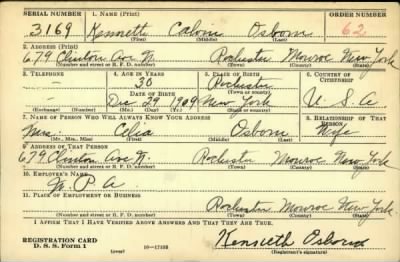 SERIAL NUMBER 1. NAME (Print) ORDER NUMBER
3169 Kenneth Calvin Osborn 62
(First) (Middle) (Last)
2. ADDRESS (Print)
679 Clinton Ave N. Rochester Monroe New York
(Number and street or R. F. D. number) (Town) (County) (State)
3. TELEPHONE 4. AGE IN YEARS 5. PLACE OF BIRTH 6. COUNTRY OF CITIZENSHIP
- 30 Rochester
DATE OF BIRTH (Town or county)
- Dec 29 1909 New York U. S. A
(Exchange) (Number) (Mo.) (Day) (Yr.) (State or country)
7. NAME OF PERSON WHO WILL ALWAYS KNOW YOUR ADDRESS 8. RELATIONSHIP OF THAT PERSON
Mrs. Celia Osborn Wife
(Mr., Mrs., Miss) (First) (Middle) (Last)
9. ADDRESS OF THAT PERSON
679 Clinton Ave N. Rochester Monroe New York
(Number and street or R. F. D. number) (Town) (County) (State)
10. EMPLOYER'S NAME
W. P. A
11. PLACE OF EMPLOYMENT OR BUSINESS
Rochester Monroe New York.
(Number and street or R. F. D. number) (Town) (County) (State)
I AFFIRM THAT I HAVE VERIFIED ABOVE ANSWERS AND THAT THEY ARE TRUE.
REGISTRATION CARD Kenneth Osborn
D. S. S. Form 1 (over) 16-17105 (Registrant's signature)